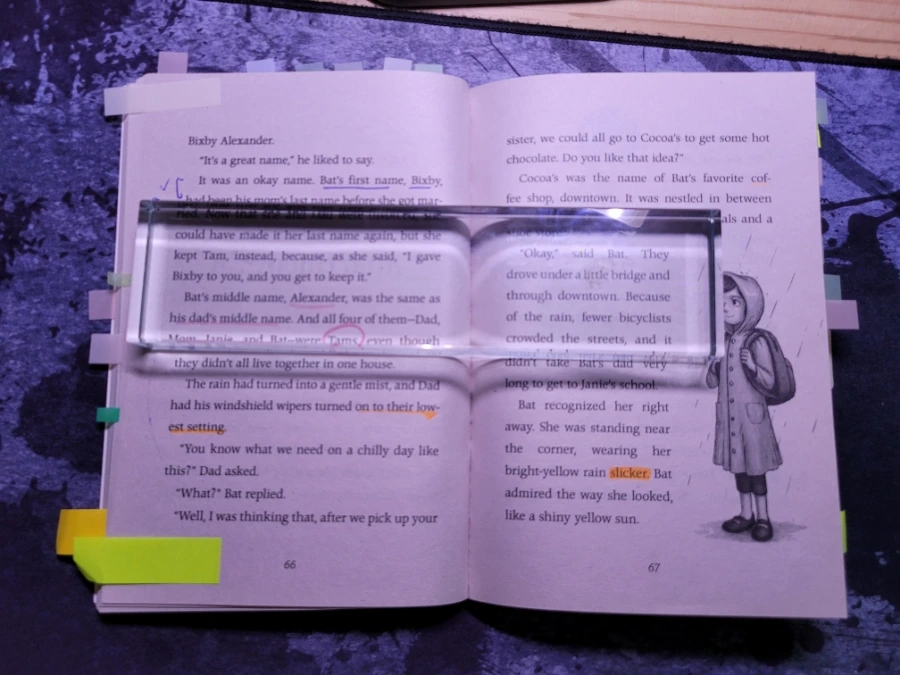 Bixby Alexander.
"It's a great name," he liked to say.
It was an okay name. Bat's first name, Bixby,
had been his mom's last name before she got mar-
ried. Now that she and Dad were divorced, she
could have made it her last name again, but she
kept Tam, instead, because, as she said, "I gave
Bixby to you, and you get to keep it."
Bat's middle name, Alexander, was the same as
his dad's middle name. And all four of them—Dad,
Mom, Janie, and Bat—were Tams, even though
they didn't all live together in one house.
The rain had turned into a gentle mist, and Dad
had his windshield wipers turned on to their low-
est setting.
"You know what we need on a chilly day like
this?" Dad asked.
"What?" Bat replied.
"Well, I was thinking that, after we pick up your
66
sister, we could all go to Cocoa's to get some hot
chocolate. Do you like that idea?"
Cocoa's was the name of Bat's favorite cof-
fee shop, downtown. It was nestled in between
als and a
"Okay," said Bat. They
drove under a little bridge and
through downtown. Because
of the rain, fewer bicyclists
crowded the streets, and it
didn't take Bat's dad very
long to get to Janie's school.
Bat recognized her right
away. She was standing near
the corner, wearing her
bright-yellow rain slicker. Bat
admired the way she looked,
like a shiny yellow sun.
67